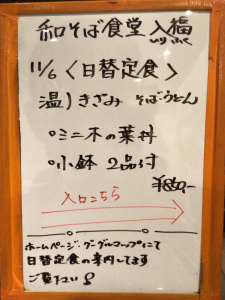 和そば食堂 入福
いり ふく
11/6 〈日替定食〉
温) きざみ そば・うどん
○ミニ木の葉丼
○小鉢 2品付
¥850.-
入口こちら
ホームページ・グーグルマップにて
日替定食の案内してます
ご覧下さい